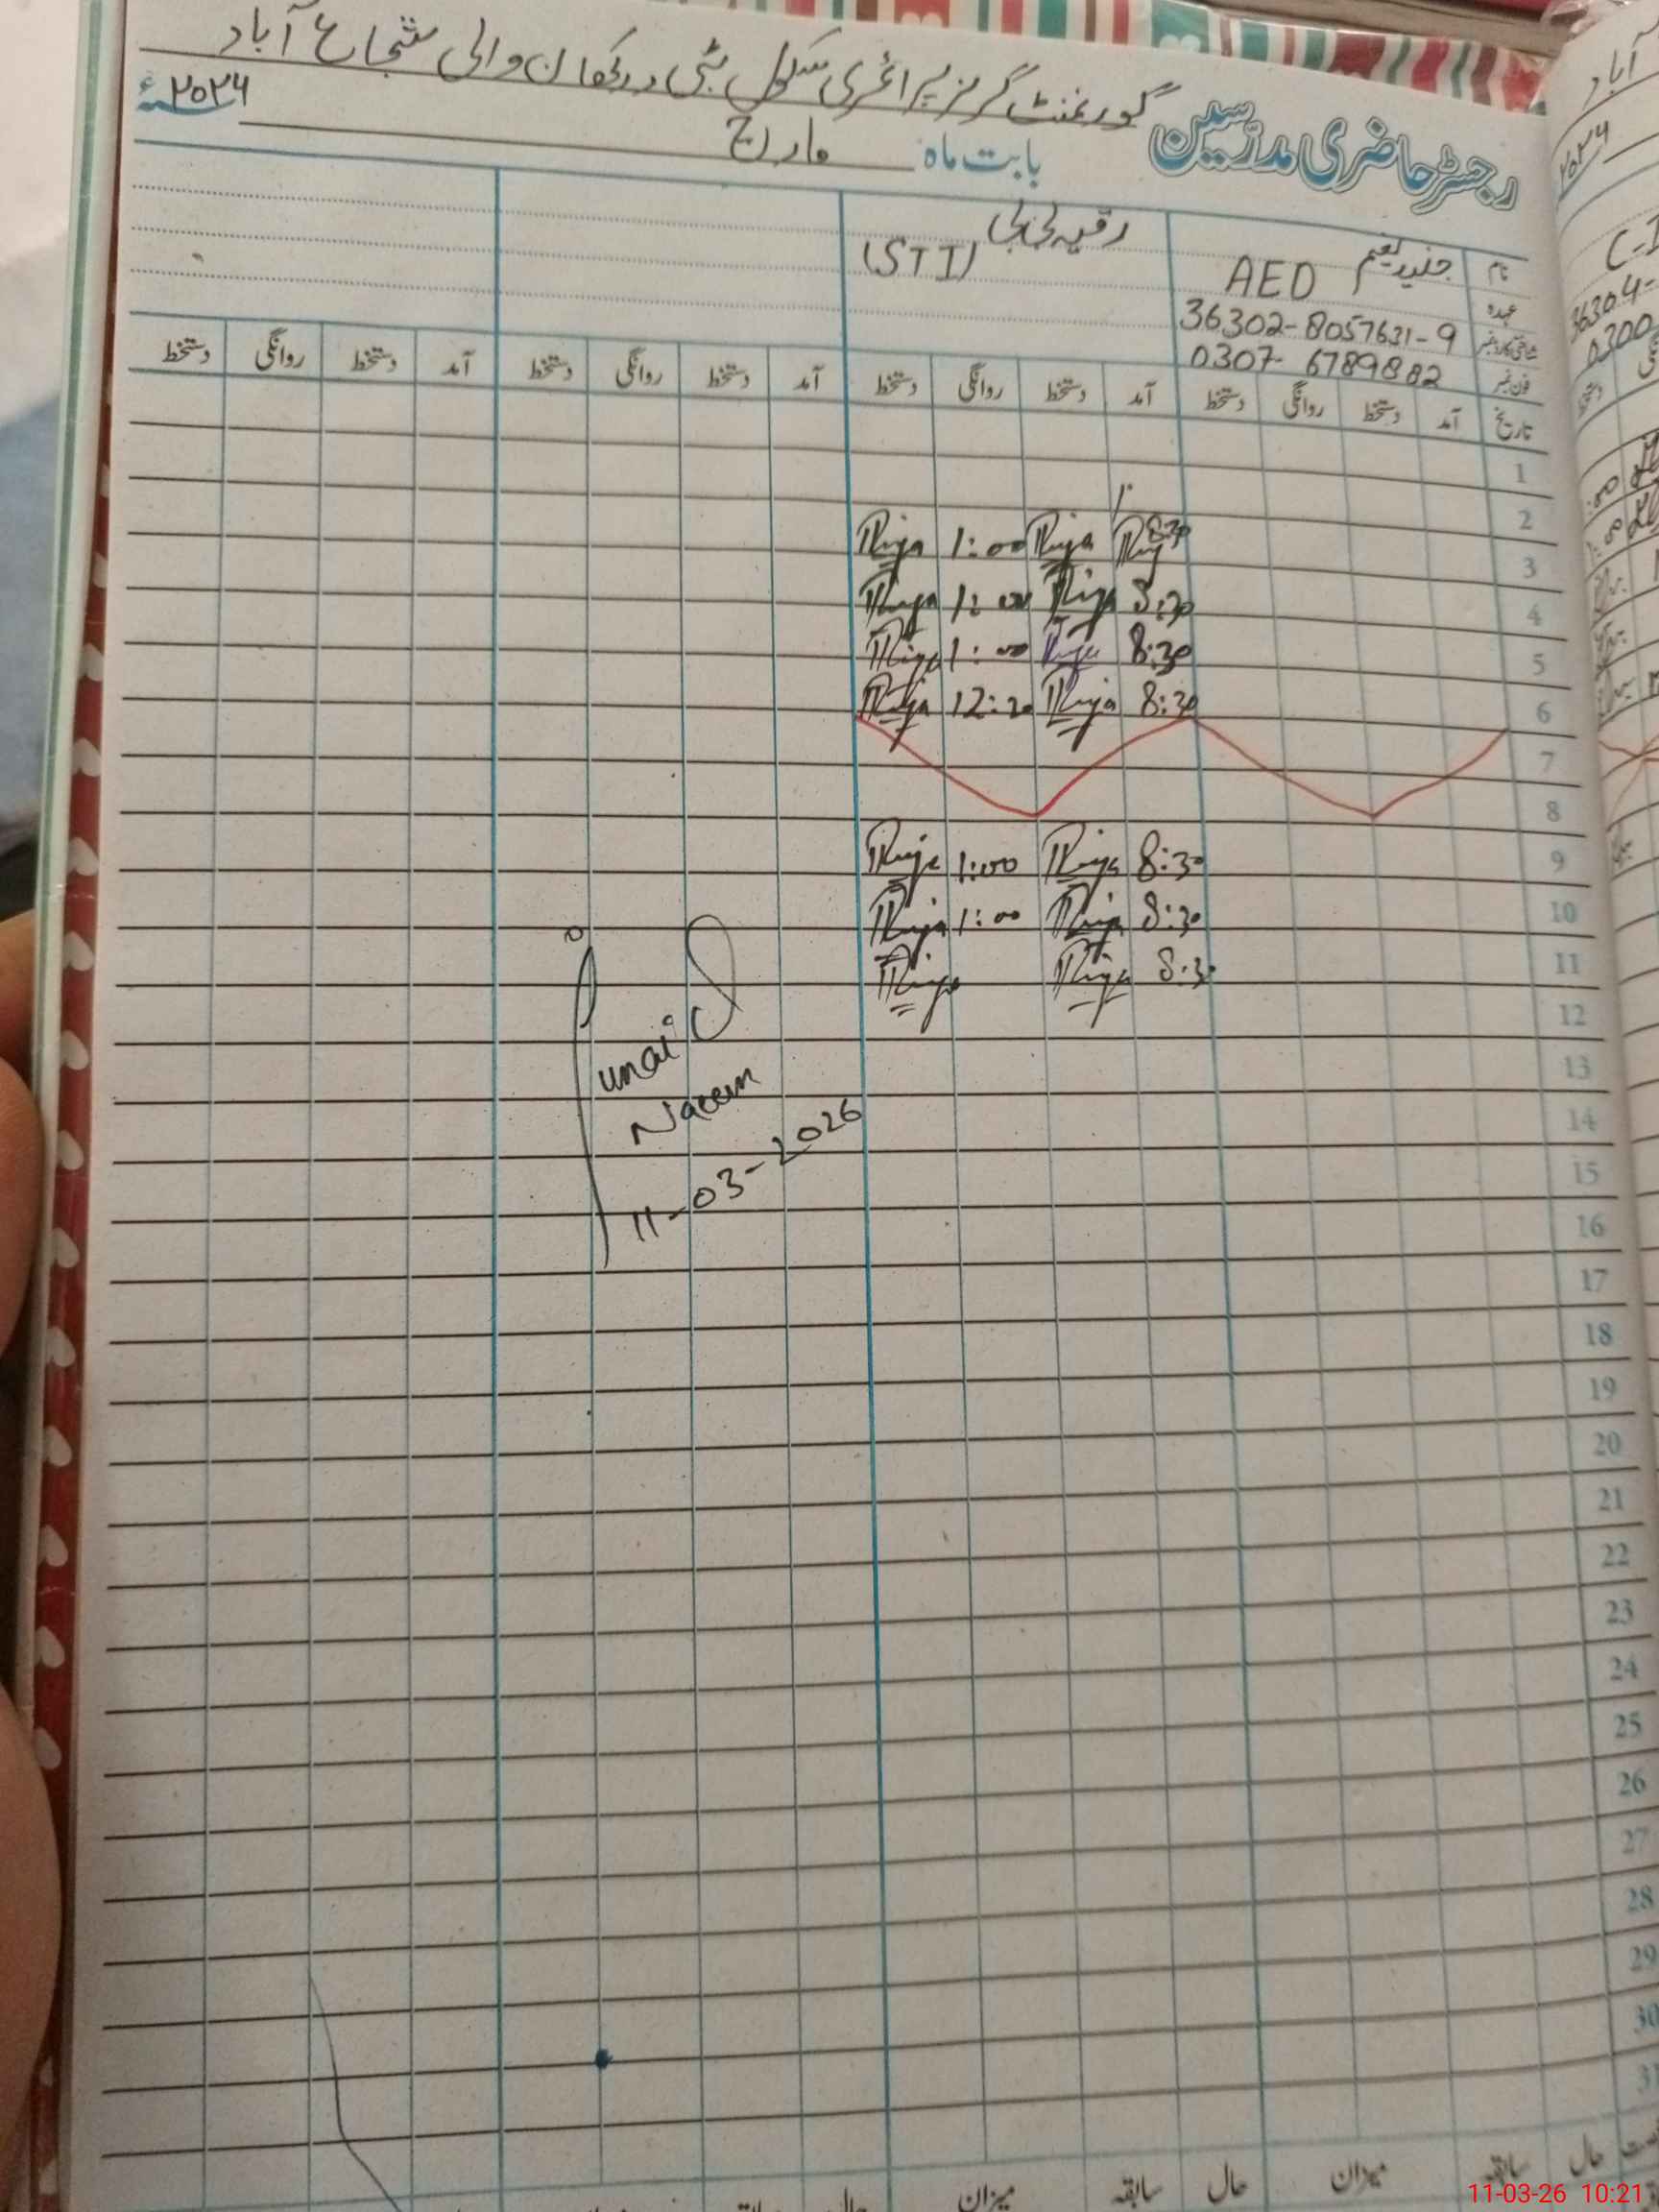 گورنمنٹ گرلز پرائمری سکول بستی درکھان والی شجاع آباد
رجسٹر حاضری مدرسین
بابت ماہ مارچ ۲۰۲۶ء
نام جنید نعیم رقیہ بی بی
عہدہ AEO (STI)
شناختی کارڈ نمبر 36302-8057631-9
فون نمبر 0307-6789882
تاریخ آمد دستخط روانگی دستخط آمد دستخط روانگی دستخط آمد دستخط روانگی دستخط آمد دستخط روانگی دستخط
1
2
3 8:30 1:00
4 8:30 1:00
5 8:30 1:00
6 8:30
7
8
9 8:30 1:00
10 8:30 1:00
11 8:30
12
13
14
15
16
17
18
19
20
21
22
23
24
25
26
27
28
29
30
31
Junaid
Naeem
11-03-2026
سابقہ حال میزان سابقہ حال میزان
11-03-26 10:21